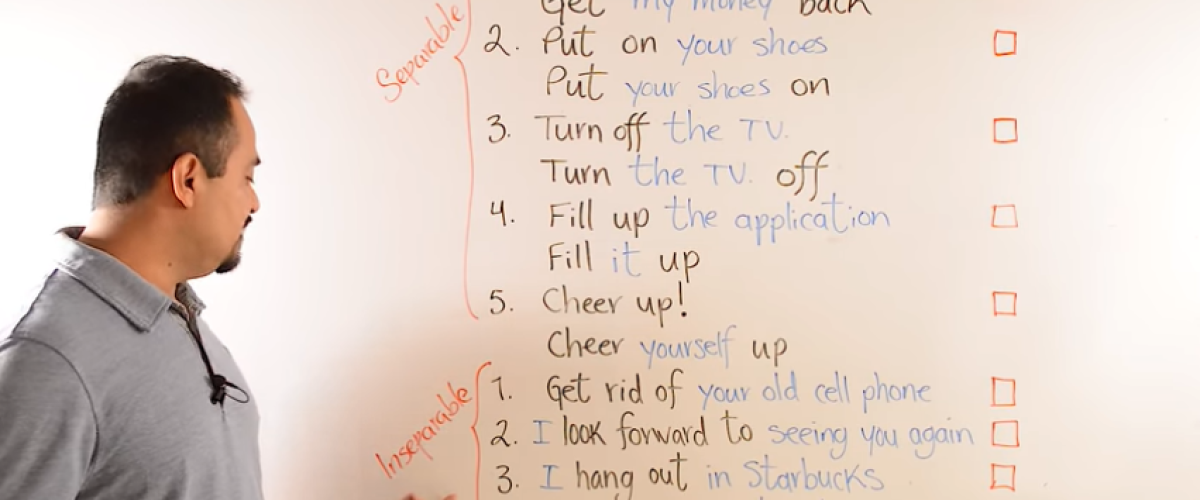 Get my money back
Separable
2. Put on your shoes
Put your shoes on
3. Turn off the TV.
Turn the TV. off
4. Fill up the application
Fill it up
5. Cheer up!
Cheer yourself up
Inseparable
1. Get rid of your old cell phone
2. I look forward to seeing you again
3. I hang out in Starbucks